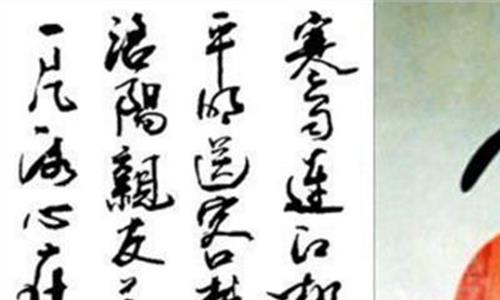 寒雨連江
平明送客楚
洛陽親友
一片冰心在